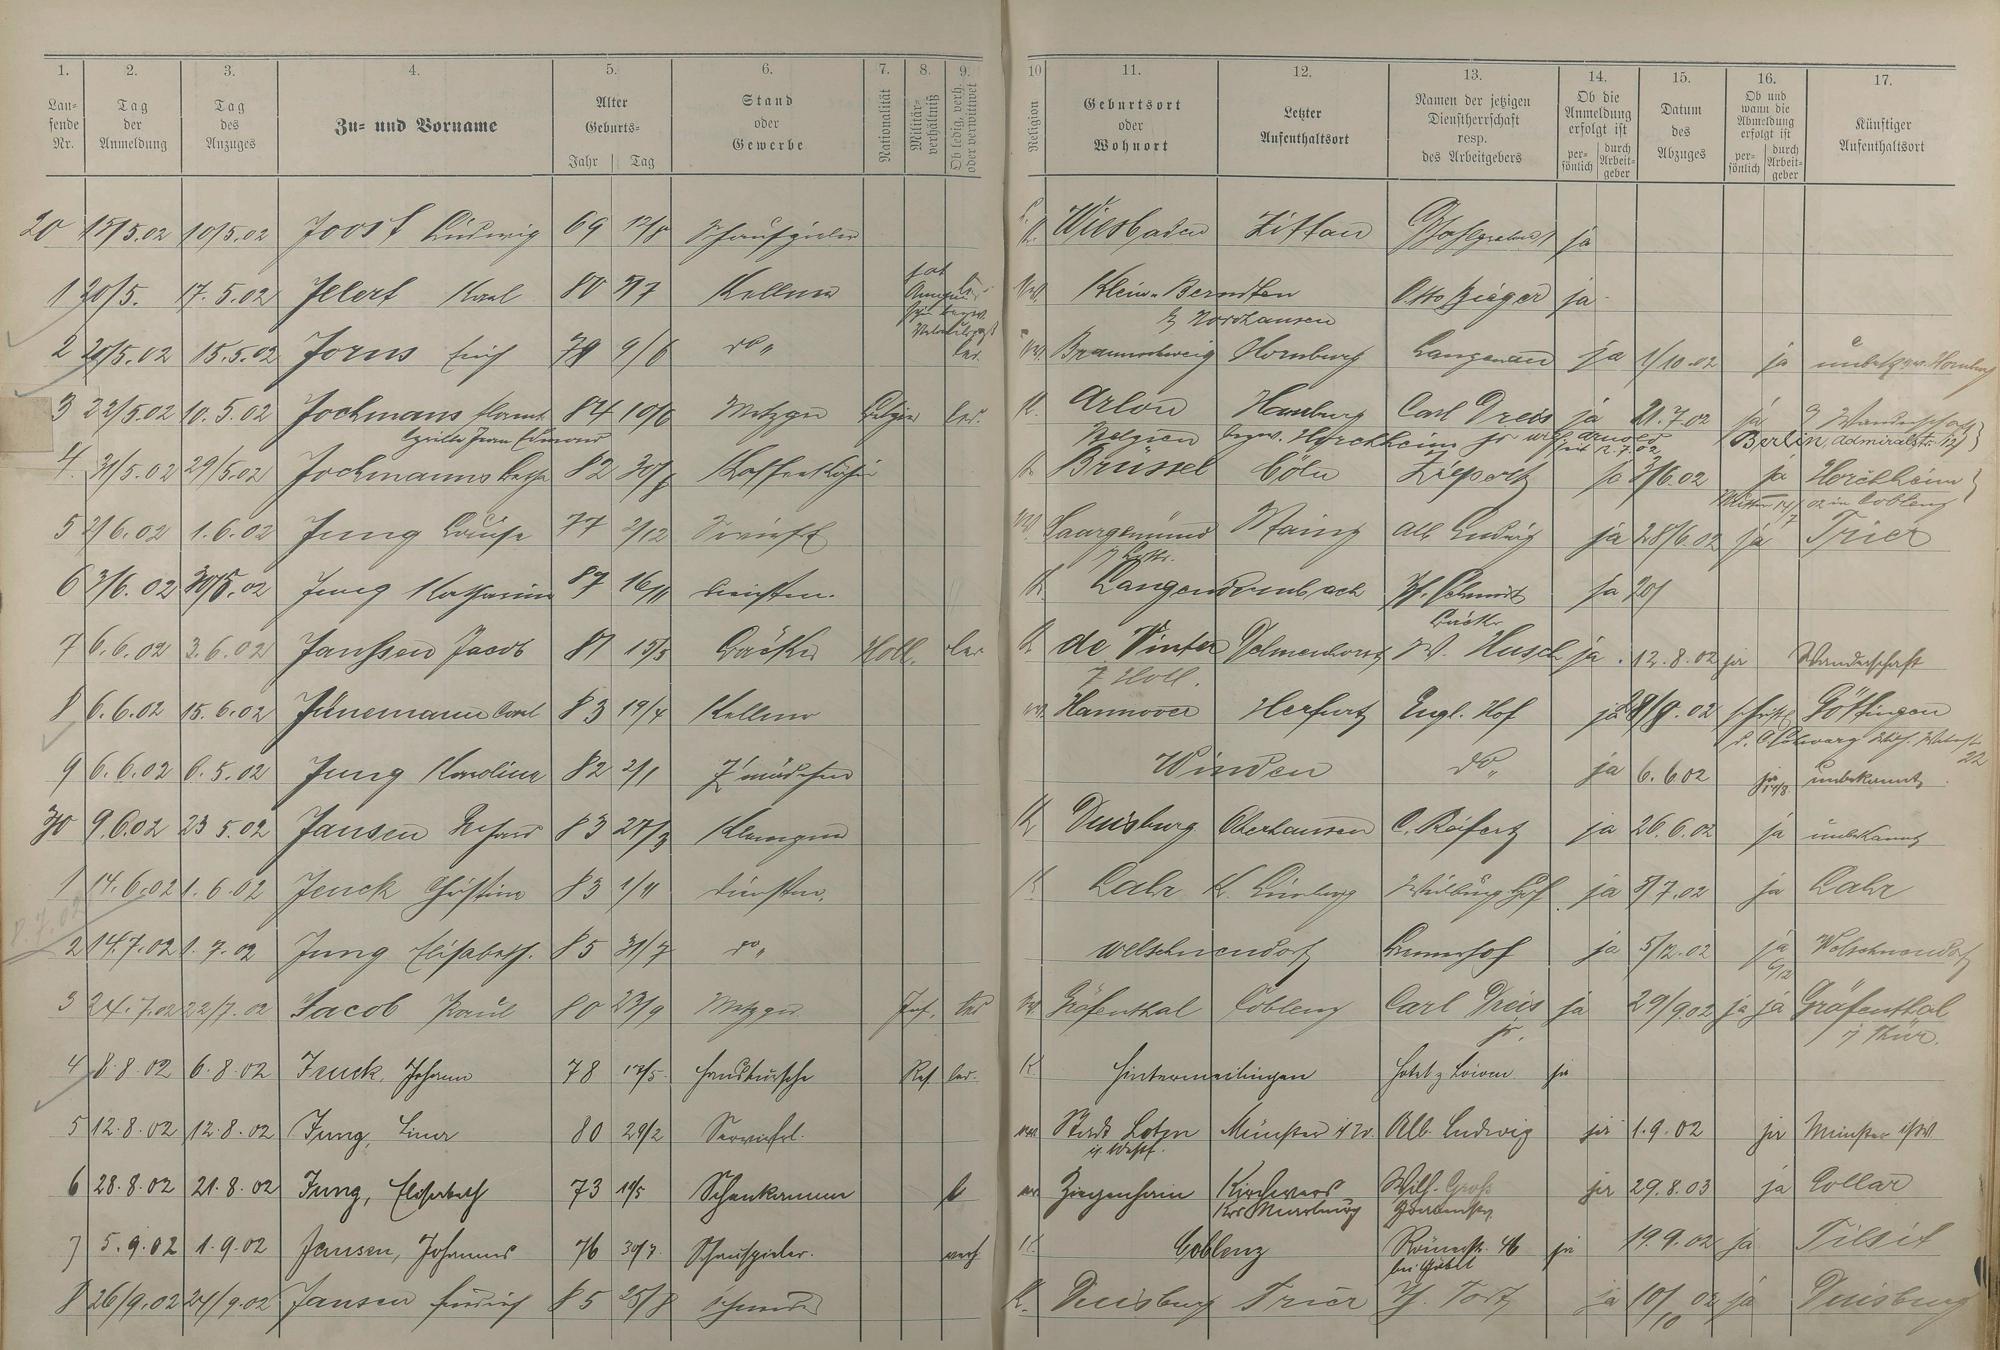 1. 2. 3. 4. 5. 6. 7. 8. 9. 10 11. 12. 13. 14. 15. 16. 17.
Lau-
fende
Nr.
Tag
der
Anmeldung
Tag
des
Anzuges
Zu- und Vorname
Alter
Geburts-
Jahr Tag
Stand
oder
Gewerbe
Nationalität
Militär-
verhältniß
Ob ledig, verh.
oder verwittwet
Religion
Geburtsort
oder
Wohnort
Letzter
Aufenthaltsort
Namen der jetzigen
Dienstherrschaft
resp.
des Arbeitgebers
Ob die
Anmeldung
erfolgt ist
per-
sönlich
durch
Arbeit-
geber
Datum
des
Abzuges
Ob und
wann die
Abmeldung
erfolgt ist
per-
sönlich
durch
Arbeit-
geber
Künftiger
Aufenthaltsort
20 15/5.02 10/5.02 Joost Ludwig 69 12/8 Schauspieler K. Wiesbaden Zittau ja
1 20/5. 17.5.02 Illert Karl 80 3/7 Kellner Klein-Berndten Otto Zieger ja
b/ Nordhausen
2 20/5.02 15.5.02 Jorns Erich 79 9/6 do " led. Braunschweig Hornburg Langenau ja 1/10.02 ja unbek. Hornburg
3 22/5.02 10.5.02 Jochmans 84 10/6 Metzger Belgier led. K. Arlon Hamburg Carl Dreis ja 21.7.02 ja Wanderschaft
Cyrille Jean Edmond Belgien bezw. Horchheim Berlin, Admiralstr. 12
4. 31/5.02 29/5.02 Jochmanns 82 30/ Kaffeeköchin K. Brüssel Cöln ja 3/6.02 ja Horchheim
in Coblenz
5 2/6.02 1.6.02 Jung Louise 77 2/12 Saargemünd Mainz Alb Ludwig ja 28/6.02 ja Trier
6 3/6.02 30/5.02 Jung Katharina 87 16/11 Dienstm. K. Langendernbach Schmidt ja 20/
7 6.6.02 3.6.02 Janssen Jacob 81 15/3 Bäcker Holl. led K de Vinter Delmenhorst W. Husch ja 12.8.02 ja Wanderschaft
Holl.
8 6.6.02 15.6.02 Jünemann Carl 83 19/4 Kellner Hannover Herfurt Engl. Hof ja 28/9.02 schriftl Göttingen
22
9 6.6.02 6.5.02 Jung Karolina 82 2/1 Z'mädchen Winden do " ja 6.6.02 ja unbekannt
30 9.6.02 23.5.02 Jansen 83 27/3 Klempner K Duisburg Oberhausen C. Reifert ja 26.6.02 ja unbekannt
1 14.6.02 1.6.02 Jenck Christina 83 1/11 Dienstm. K Lahr K. Limburg ja 5/7.02 ja Lahr
8.7.02
2 14.7.02 1.7.02 Jung Elisabeth. 85 31/7 do " Welschneudorf ja 5/12.02 ja Welschneudorf
3 24.7.02 22/7.02 Jacob Paul 80 23/9 Metzger Inf. led Gräfenthal Coblenz Carl Dreis ja 29/9.02 ja ja Gräfenthal
jr. i/ Thür.
4 8.8.02 6.8.02 Jenck, Johann 78 17/5 Hausbursche Res. led. K. Hintermeilingen Hotel z Löwen ja
5 12.8.02 12.8.02 Jung, Lina 80 29/2 Servierfrl. Münster i/W. Alb. Ludwig ja 1.9.02 ja Münster i/W.
i. Westf.
6 28.8.02 21.8.02 Jung, Elisabeth 73 19/5 Schenkamme l Ziegenhain Kirchvers Wilh. Groß ja 29.8.03 ja Lollar
Krs Marburg
7 5.9.02 1.9.02 Jansen, Johannes 76 30/7 Schauspieler. verh K. Coblenz Römerstr. 46 ja 19.9.02 ja Tilsit
8 26/9.02 24/9.02 Jansen 85 25/8 K. Duisburg Trier ja 10/10 02 ja Duisburg